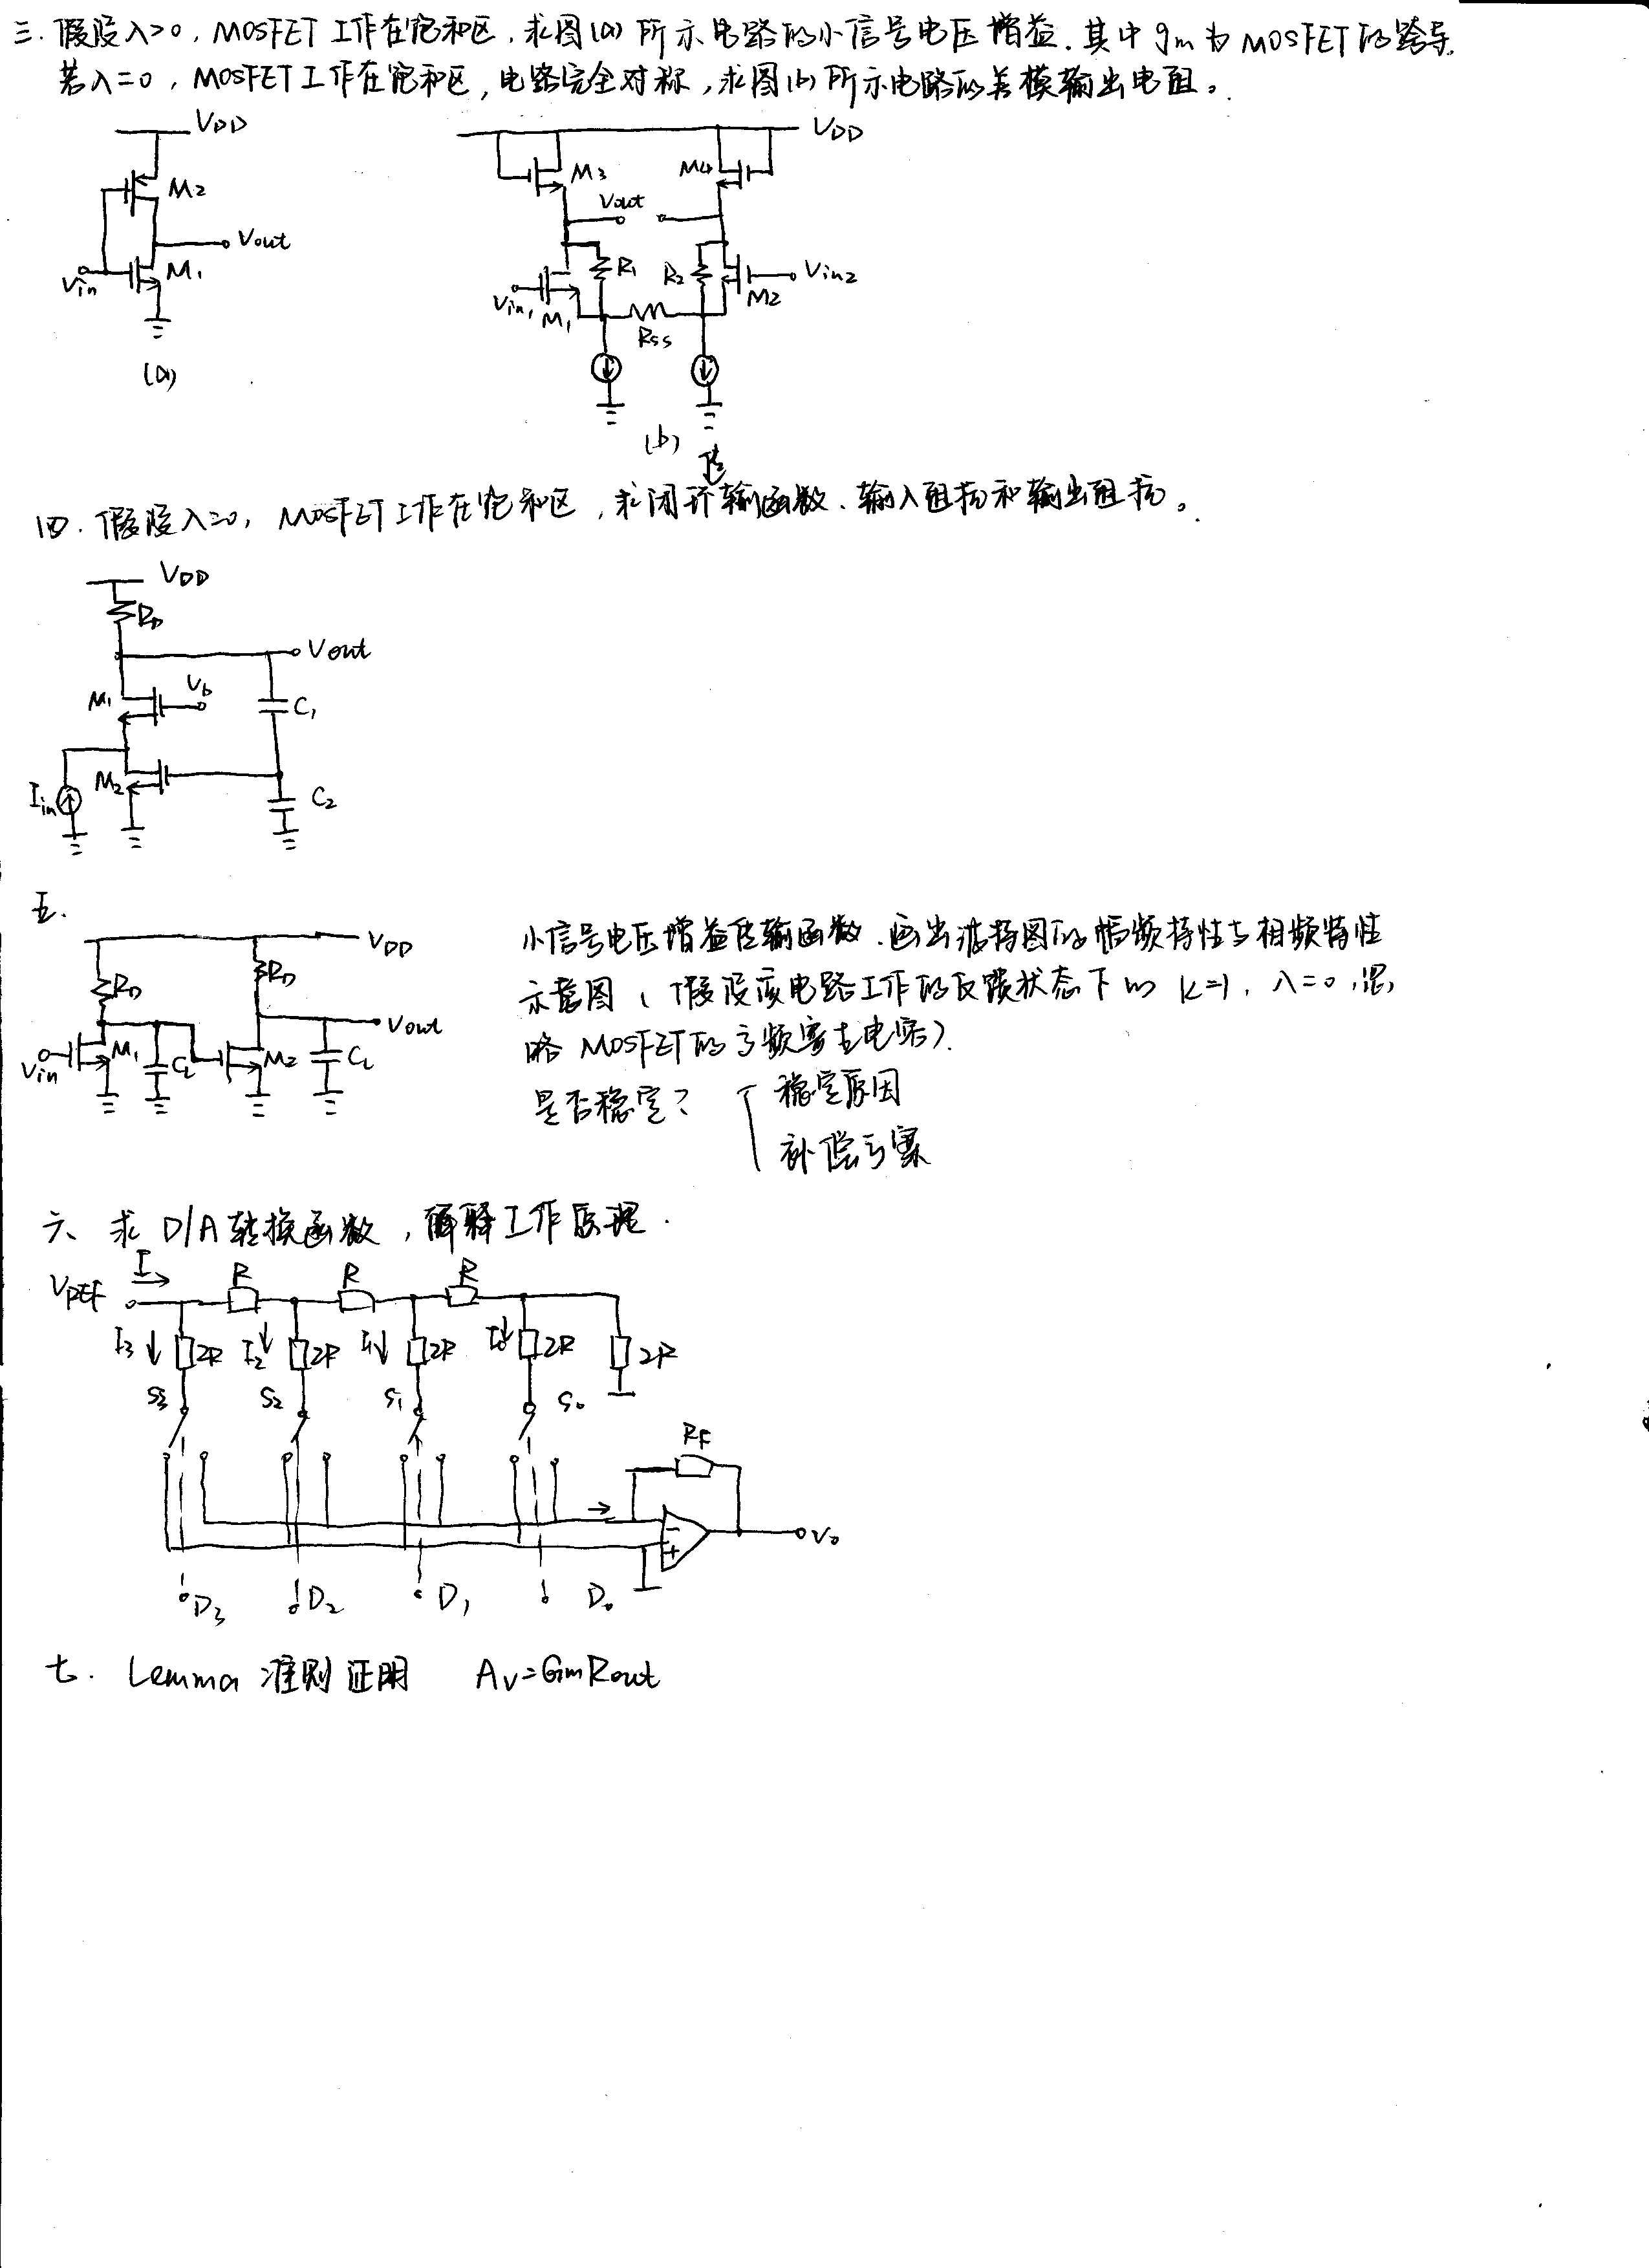 三. 假设λ>0, MOSFET工作在饱和区, 求图(a)所示电路的小信号电压增益. 其中gm为MOSFET的跨导.
若λ=0, MOSFET工作在饱和区, 电路完全对称, 求图(b)所示电路的差模输出电阻。
VDD
M2
Vout
Vin
M1
(a)
VDD
M3
M4
Vout
R1
R2
Vin1
M1
Vin2
M2
Rss
(b)
四. 假设λ=0, MOSFET工作在饱和区, 求闭环传输函数、输入阻抗和输出阻抗。
VDD
RD
Vout
M1
Vb
C1
M2
Iin
C2
五.
VDD
RD
RD
Vout
Vin
M1
CL
M2
CL
小信号电压增益传输函数. 画出波特图的幅频特性与相频特性
示意图 (假设该电路工作的反馈状态下的 K=1, λ=0, 忽
略 MOSFET的高频寄生电容).
是否稳定?
稳定原因
补偿方案
六、求D/A转换函数, 解释工作原理.
VREF
I
R
R
R
I3
2R
I2
2R
I1
2R
I0
2R
2R
S3
S2
S1
S0
RF
Vo
D3
D2
D1
D0
七. Lemma 准则证明 Av=GmRout